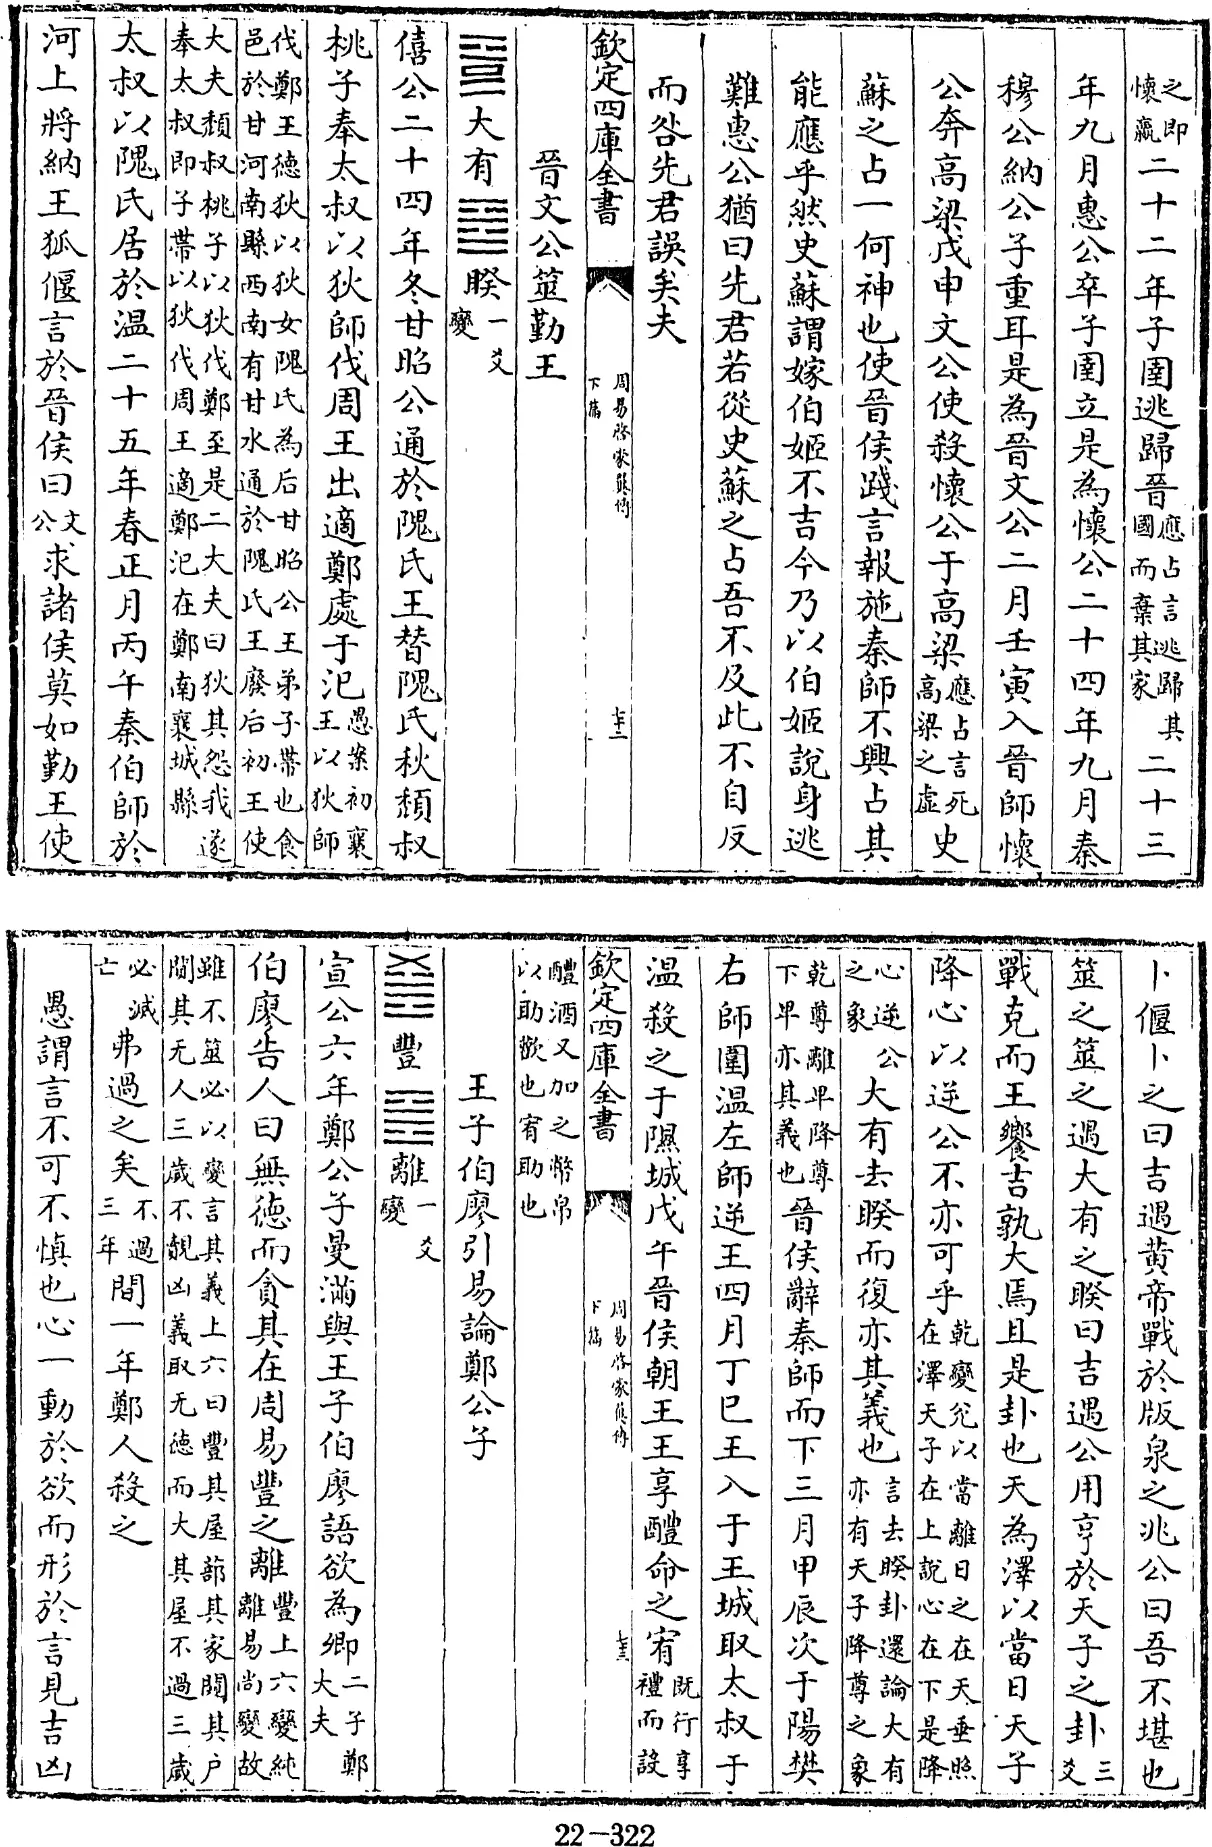 之即懷嬴二十二年子圉逃歸晉應占言逃歸其國而棄其家二十三
年九月惠公卒子圉立是為懷公二十四年九月秦
穆公納公子重耳是為晉文公二月壬寅入晉師懷
公奔高梁戊申文公使殺懷公于高梁應占言死高梁之虛史
蘇之占一何神也使晉侯踐言報施秦師不興占其
能應乎然史蘇謂嫁伯姬不吉今乃以伯姬說身逃
難惠公猶曰先君若從史蘇之占吾不及此不自反
而咎先君誤矣夫
欽定四庫全書
周易啓蒙翼傳
下篇
七十二
晉文公筮勤王
䷍大有䷥睽一爻變
僖公二十四年冬甘昭公通於隗氏王替隗氏秋頹叔
桃子奉太叔以狄師伐周王出適鄭處于氾愚案初襄王以狄師
伐鄭王德狄以狄女隗氏為后甘昭公王弟子帶也食
邑於甘河南縣西南有甘水通於隗氏王廢后初王使
大夫頹叔桃子以狄伐鄭至是二大夫曰狄其怨我遂
奉太叔即子帶以狄伐周王適鄭氾在鄭南襄城縣
太叔以隗氏居於温二十五年春正月丙午秦伯師於
河上將納王狐偃言於晉侯曰文公求諸侯莫如勤王使
卜偃卜之曰吉遇黄帝戰於版泉之兆公曰吾不堪也
筮之筮之遇大有之睽曰吉遇公用亨於天子之卦三爻
戰克而王饗吉孰大焉且是卦也天為澤以當日天子
降心以逆公不亦可乎乾變兊以當離日之在天垂照在澤天子在上說心在下是降
心逆公之象大有去睽而復亦其義也言去睽卦還論大有亦有天子降尊之象
乾尊離卑降尊下卑亦其義也晉侯辭秦師而下三月甲辰次于陽樊
右師圍温左師逆王四月丁巳王入于王城取太叔于
温殺之于隰城戊午晉侯朝王王享醴命之宥既行享禮而設
欽定四庫全書
周易啓蒙翼傳
下篇
七十三
醴酒又加之幣帛以助歡也宥助也
王子伯廖引易論鄭公子
豐䷝離一爻變
宣公六年鄭公子曼滿與王子伯廖語欲為卿二子鄭大夫
伯廖告人曰無德而貪其在周易豐之離豐上六變純離易尚變故
雖不筮必以變言其義上六曰豐其屋蔀其家闚其户
闃其无人三歲不覿凶義取无德而大其屋不過三歲
必滅亡弗過之矣不過三年間一年鄭人殺之
愚謂言不可不慎也心一動於欲而形於言見吉凶
22-322